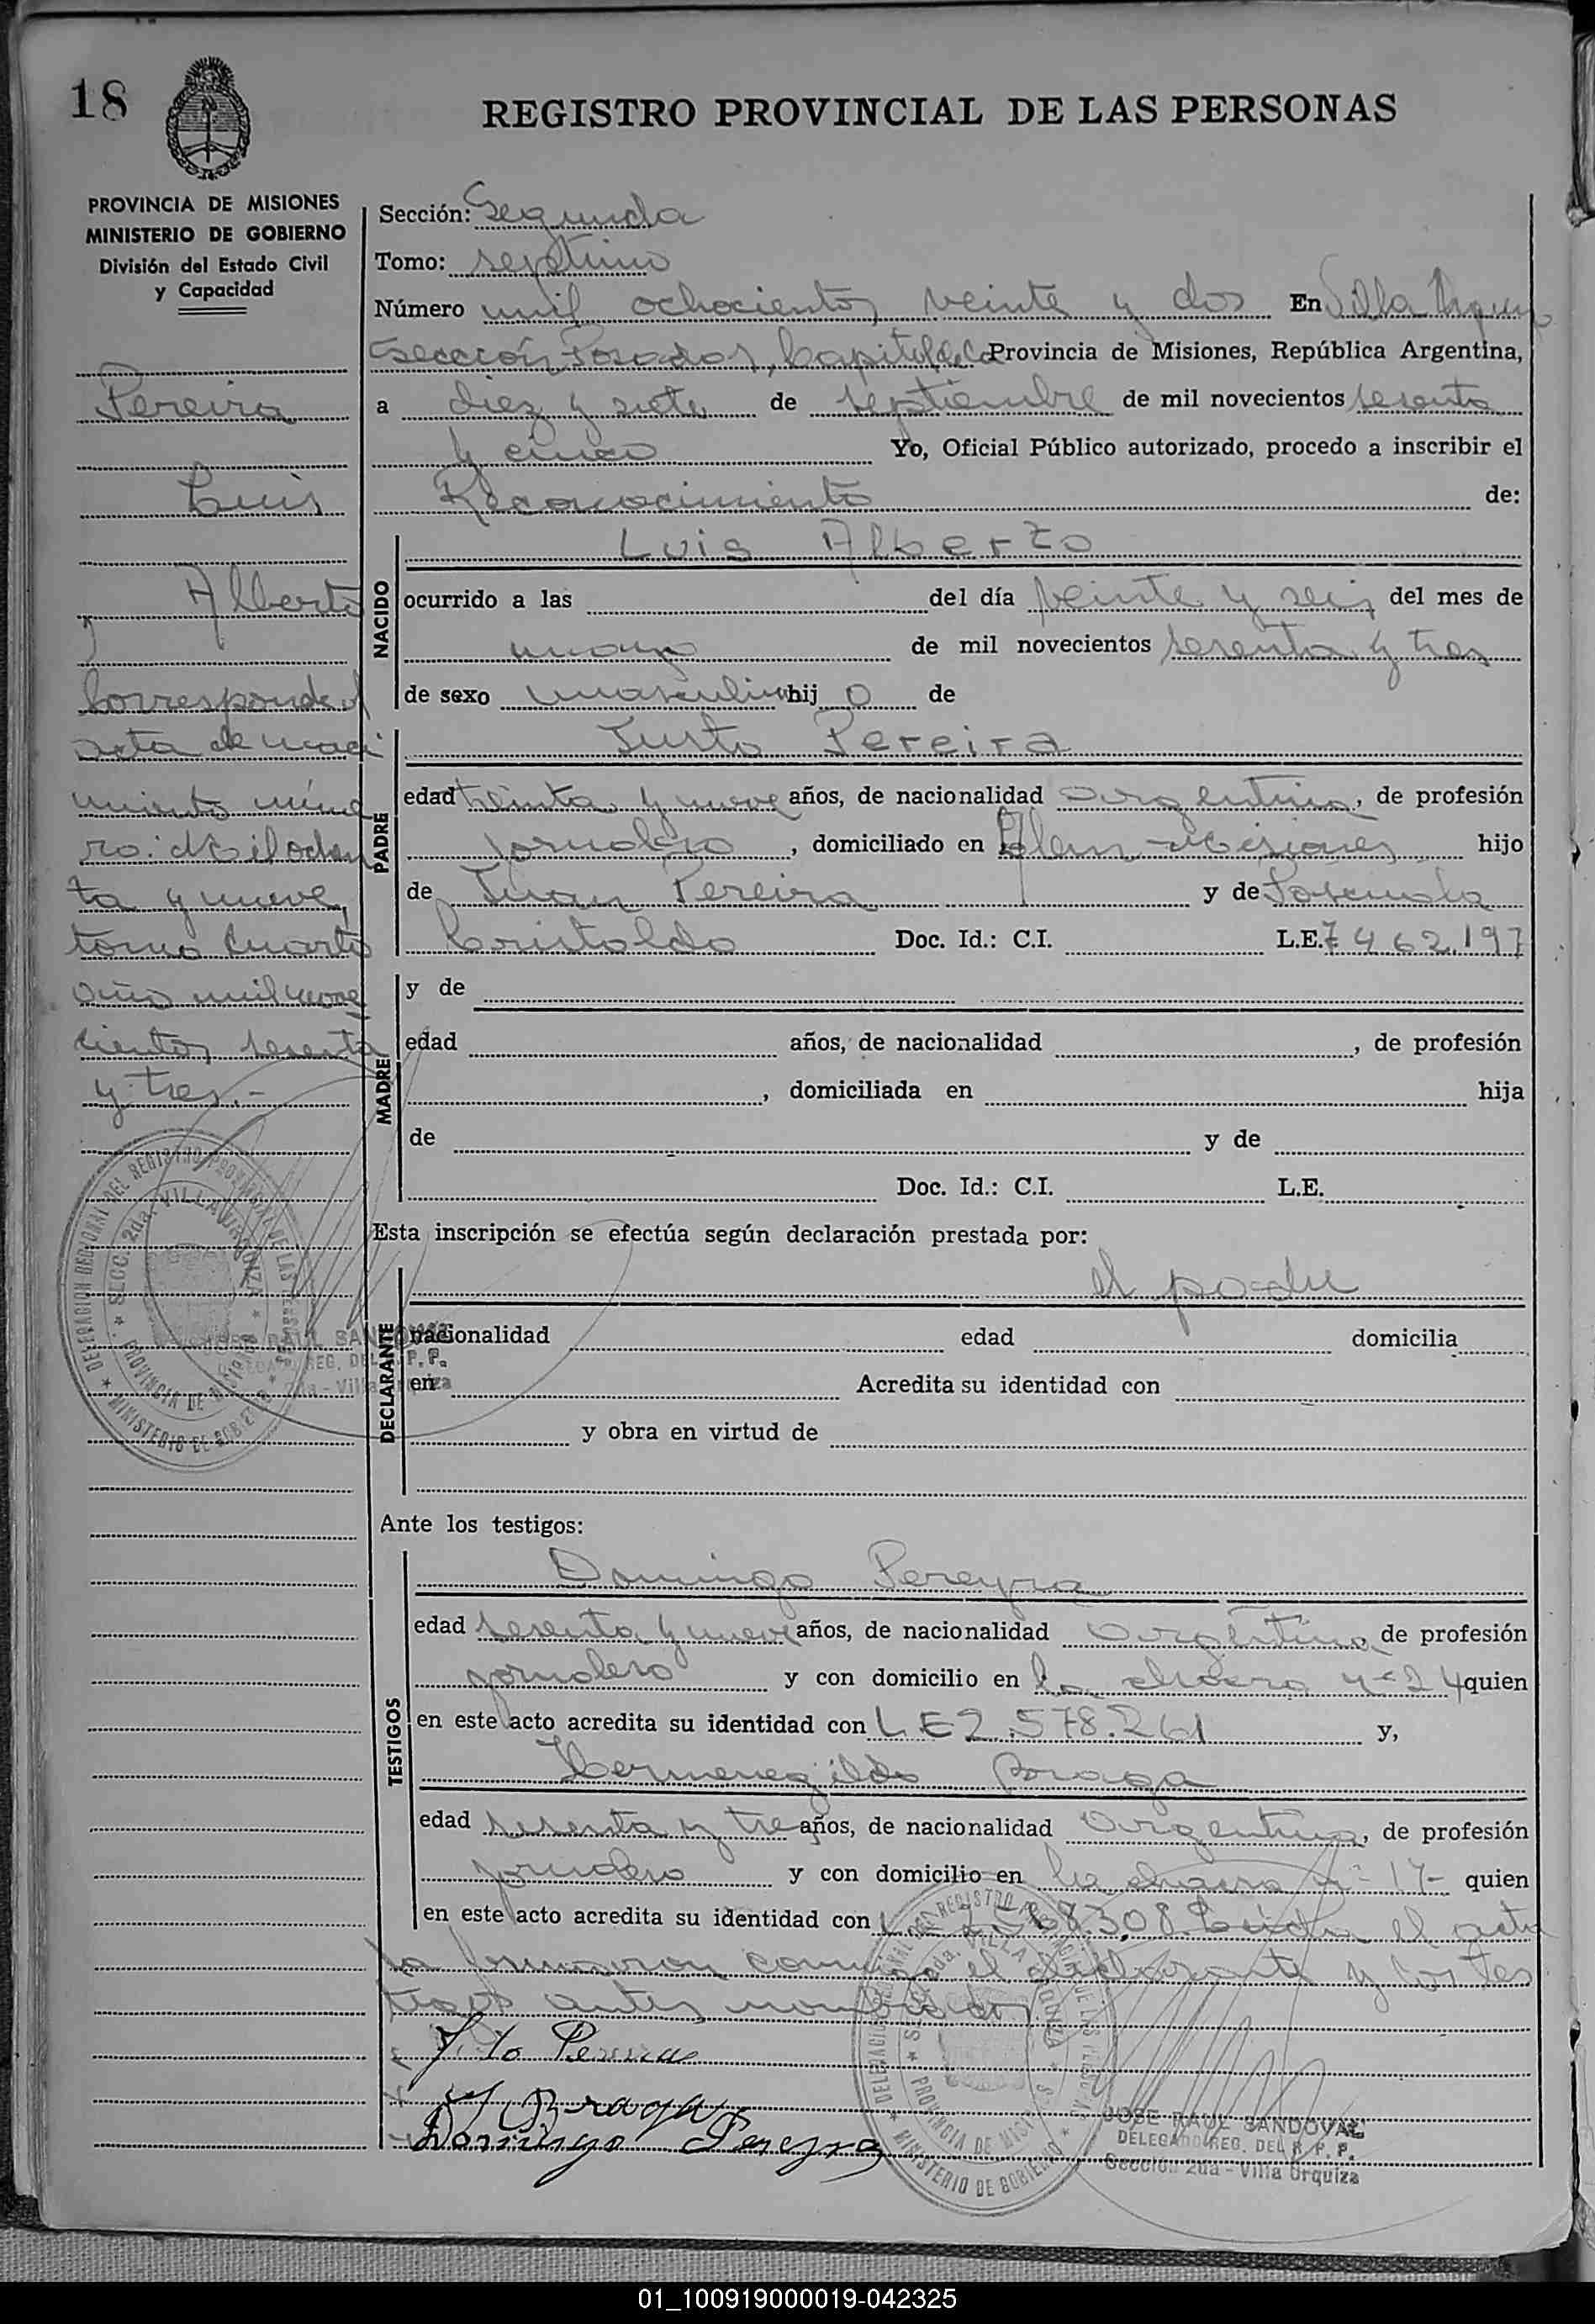 18
REGISTRO PROVINCIAL DE LAS PERSONAS
PROVINCIA DE MISIONES
MINISTERIO DE GOBIERNO
División del Estado Civil
y Capacidad
Pereira
Luis
Alberto
Corresponde al
acta de naci
miento núme
ro: Mil ochen
ta y nueve,
tomo cuarto
año mil nove
cientos sesenta
y tres.-
Sección: Segunda
Tomo: septimo
Número mil ochocientos veinte y dos En Villa Urquiza
Sección Posadas, Capital de la Provincia de Misiones, República Argentina,
a diez y siete de septiembre de mil novecientos sesenta
y cinco Yo, Oficial Público autorizado, procedo a inscribir el
Reconocimiento de:
NACIDO
Luis Alberto
ocurrido a las del día veinte y seis del mes de
mayo de mil novecientos sesenta y tres
de sexo masculino hijo de
PADRE
Justo Pereira
edad treinta y nueve años, de nacionalidad argentina, de profesión
jornalero, domiciliado en Alem - Misiones hijo
de Juan Pereira y de
Cristaldo Doc. Id.: C.I. L.E. 7.462.197
MADRE
y de
edad años, de nacionalidad , de profesión
, domiciliada en hija
de y de
Doc. Id.: C.I. L.E.
Esta inscripción se efectúa según declaración prestada por:
DECLARANTE
el padre
nacionalidad edad domicilia
en Acredita su identidad con
y obra en virtud de
Ante los testigos:
TESTIGOS
Domingo Pereyra
edad sesenta y nueve años, de nacionalidad argentina, de profesión
jornalero y con domicilio en la chacra nº 24 quien
en este acto acredita su identidad con L E 2.578.261 y,
Hermenegildo Braga
edad sesenta y tres años, de nacionalidad argentina, de profesión
jornalero y con domicilio en la chacra nº 17- quien
en este acto acredita su identidad con Leida el acta
la firmaron conmigo el declarante y los tes
tigos antes nombrados
Justo Pereira
Braga
Domingo Pereyra
DELEGACION REGIONAL DEL REGISTRO PROVINCIAL DE LAS PERSONAS
SECC. 2da. VILLA URQUIZA
PROVINCIA DE MISIONES
MINISTERIO DE GOBIERNO
JOSE RAUL SANDOVAL
DELEGADO REG. DEL R. P. P.
Sección 2da - Villa Urquiza
01_100919000019-042325